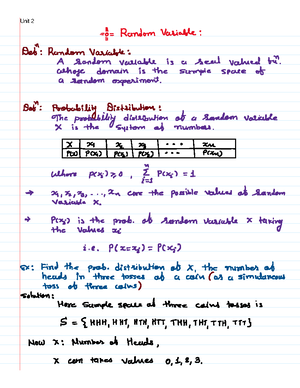 Unit 2
Random Variable :
Defⁿ: Random Variable :
A Random variable is a real valued fuⁿ.
whose domain is the sample space of
a random experiment.
Defⁿ: Probability Distribution :
The probability distribution of a random variable
X is the system of numbers.
X x₁ x₂ x₃ ... xₙ
P(X) P(x₁) P(x₂) P(x₃) ... P(xₙ)
where P(xᵢ) ≥ 0 , Σ P(xᵢ) = 1
→ x₁, x₂, x₃, ..., xₙ are the possible values of random
variable X.
→ P(xᵢ) is the prob. of random variable X taking
the values xᵢ
i.e. P(X=xᵢ) = P(xᵢ)
Ex: Find the prob. distribution of X, the number of
heads in three tosses of a coin (or a simultaneous
toss of three coins)
Solution:
Here Sample space of three coins tosses is
S = { HHH, HHT, HTH, HTT, THH, THT, TTH, TTT }
Now X: Number of Heads,
X can takes values 0, 1, 2, 3.